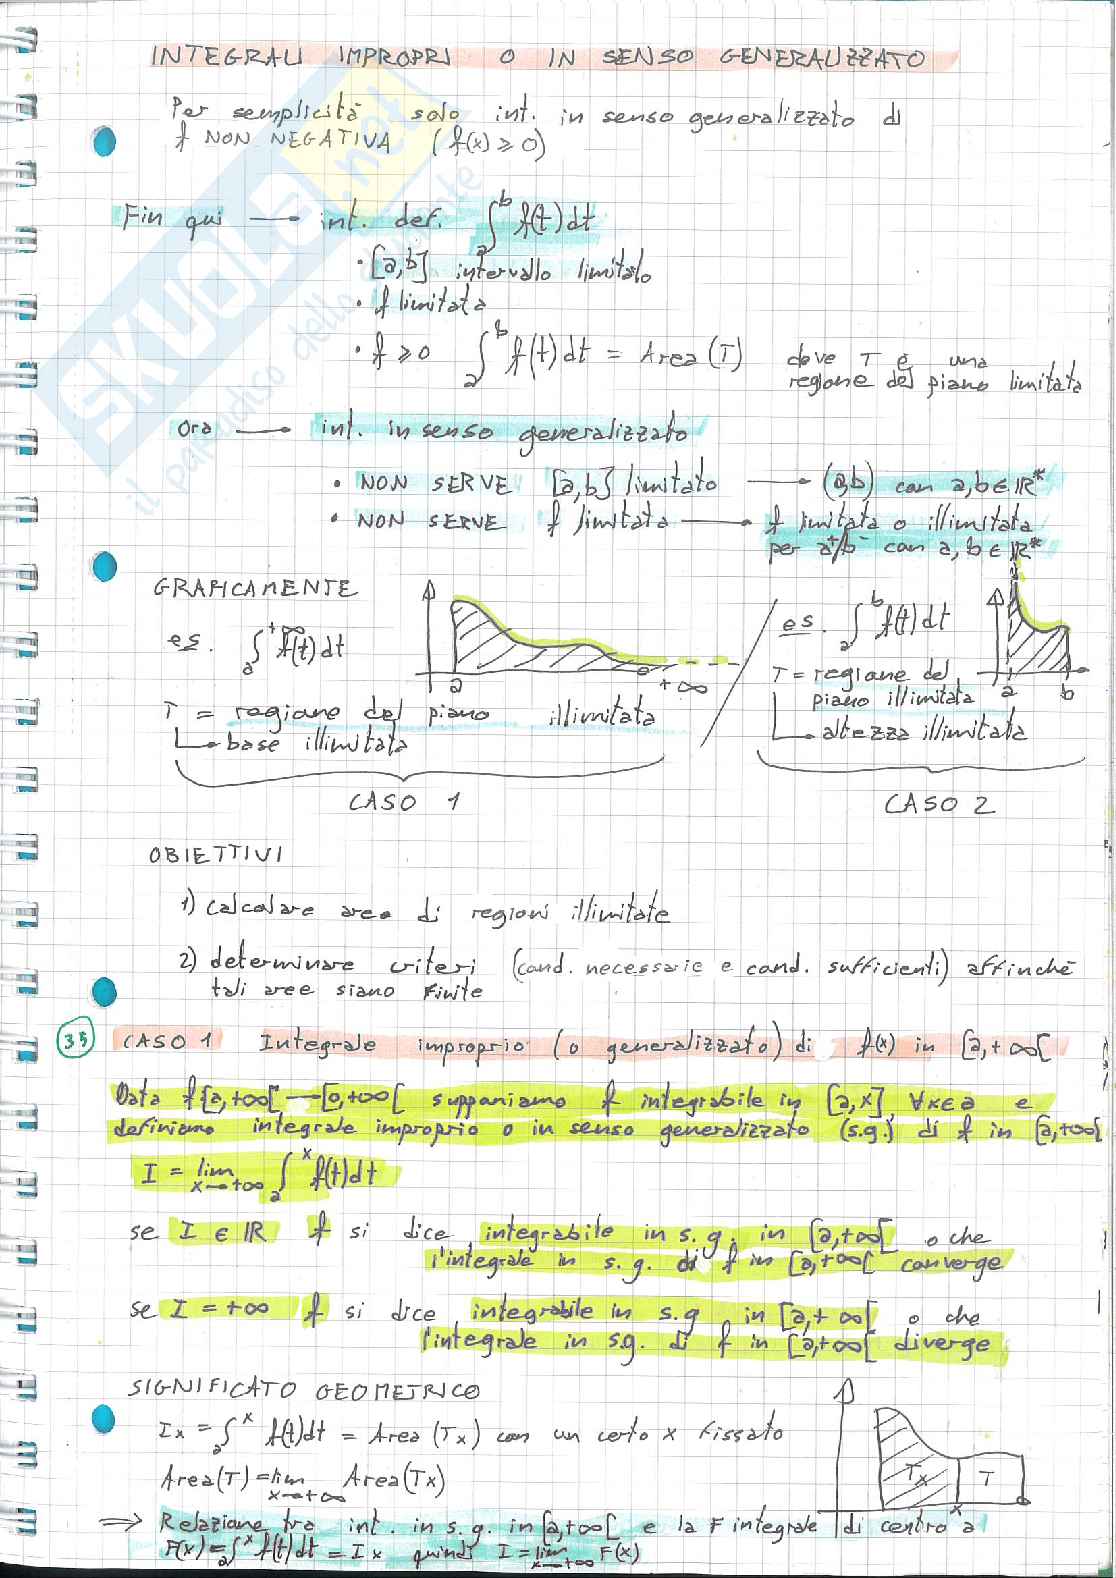 INTEGRALI IMPROPRI O IN SENSO GENERALIZZATO
Per semplicità solo int. in senso generalizzato di
f NON NEGATIVA (f(x) ≥ 0)
Fin qui → int. def. ∫_a^b f(t)dt
• [a,b] intervallo limitato
• f limitata
• f ≥ 0 ∫_a^b f(t)dt = Area (T) dove T è una
regione del piano limitata
Ora → int. in senso generalizzato
• NON SERVE [a,b] limitato → (a,b) con a,b ∈ ℝ*
• NON SERVE f limitata → f limitata o illimitata
per a⁺/b⁻ con a,b ∈ ℝ*
GRAFICAMENTE
es. ∫_a^+∞ f(t)dt
a
+∞
T = regione del piano illimitata
↳ base illimitata
CASO 1
es. ∫_a^b f(t)dt
a b
T = regione del
piano illimitata
↳ altezza illimitata
CASO 2
OBIETTIVI
1) calcolare area di regioni illimitate
2) determinare criteri (cond. necessarie e cond. sufficienti) affinchè
tali aree siano finite
35 CASO 1 Integrale improprio (o generalizzato) di f(x) in [a,+∞[
Data f[a,+∞[ → [0,+∞[ supponiamo f integrabile in [a,x], ∀x∈a e
definiamo integrale improprio o in senso generalizzato (s.g.) di f in [a,+∞[
I = lim x→+∞ ∫_a^x f(t)dt
se I ∈ ℝ f si dice integrabile in s.g. in [a,+∞[ o che
l'integrale in s.g. di f in [a,+∞[ converge
se I = +∞ f si dice integrabile in s.g in [a,+∞[ o che
l'integrale in s.g. di f in [a,+∞[ diverge
SIGNIFICATO GEOMETRICO
Ix = ∫_a^x f(t)dt = Area (Tx) con un certo x fissato
Area(T) = lim x→+∞ Area(Tx)
Tx T
x
⇒ Relazione tra int. in s.g. in [a,+∞[ e la F integrale di centro a
F(x) = ∫_a^x f(t)dt = Ix quindi I = lim x→+∞ F(x)
SKUOLA.net
il paradiso dello studente